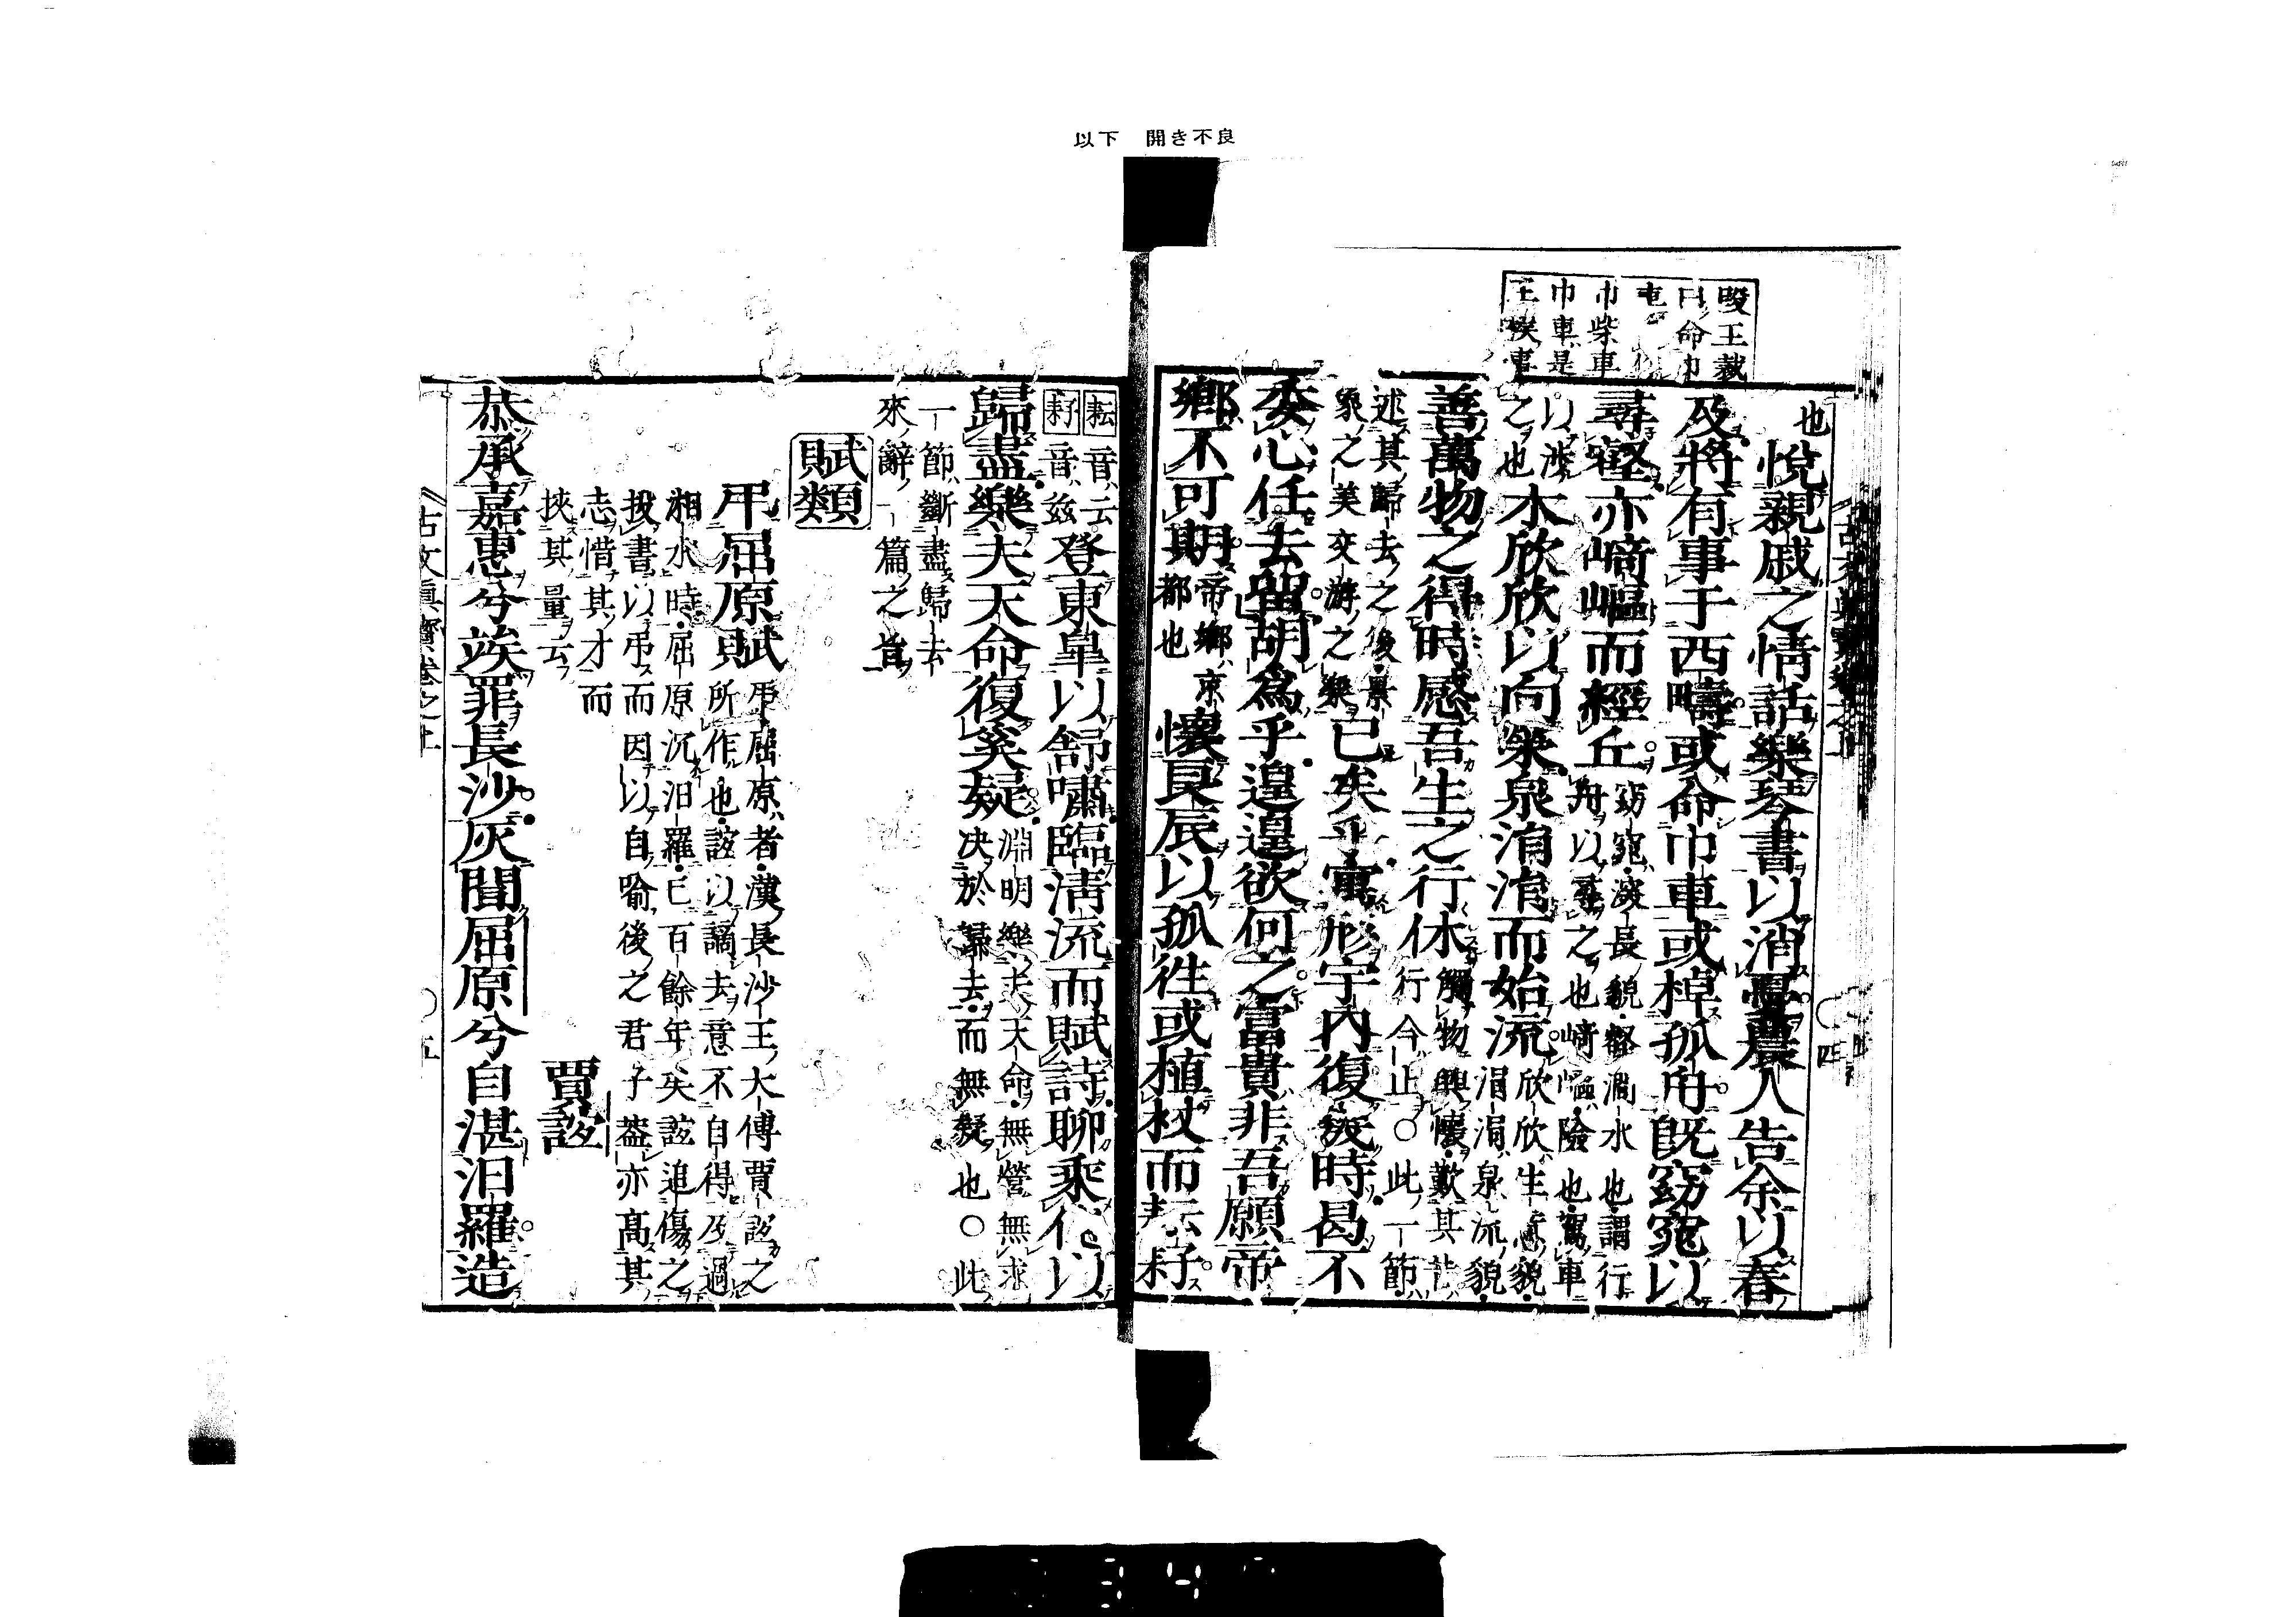 以下　開き不良
酘王裁
曰命巾
車
巾柴車
巾車是
王矦車
也悅親戚之情話樂琴書以消憂農人告余以春
及將有事于西疇或命巾車或棹孤舟既窈窕以
尋壑亦崎嶇而經丘窈窕深長貌壑澗水也謂行
舟以尋之也崎嶇險也駕車
以涉
之也木欣欣以向榮泉涓涓而始流欣欣生意貌
涓涓泉流貌
善萬物之得時感吾生之行休觸物興懷歎其昔
行今止○此一節
述其歸去之後景
象之美交游之樂已矣乎寓形宇內復幾時曷不
委心任去留胡爲乎遑遑欲何之富貴非吾願帝
鄉不可期帝鄉京
都也懷良辰以孤往或植杖而耘耔
耘音云
耔音玆登東皐以舒嘯臨清流而賦詩聊乘化以
歸盡樂夫天命復奚疑淵明樂夫天命無營無求
决於歸去而無疑也○此
一節斷盡歸去
來辭一篇之旨
賦類
弔屈原賦弔屈原者漢長沙王大傅賈誼之
所作也誼以謫去意不自得及過
湘水時屈原沉汨羅已百餘年矣誼追傷之
投書以弔而因以自喻後之君子蓋亦高其
志惜其才而
挾其量云
賈誼
恭承嘉惠兮竢罪長沙灰聞屈原兮自湛汨羅造
古文眞寶卷之十
○五